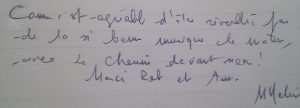 Comme c'est agréable d'être réveillé par
de la si belle musique le matin,
avec le chemin devant nous !
Merci Rob et Ann.